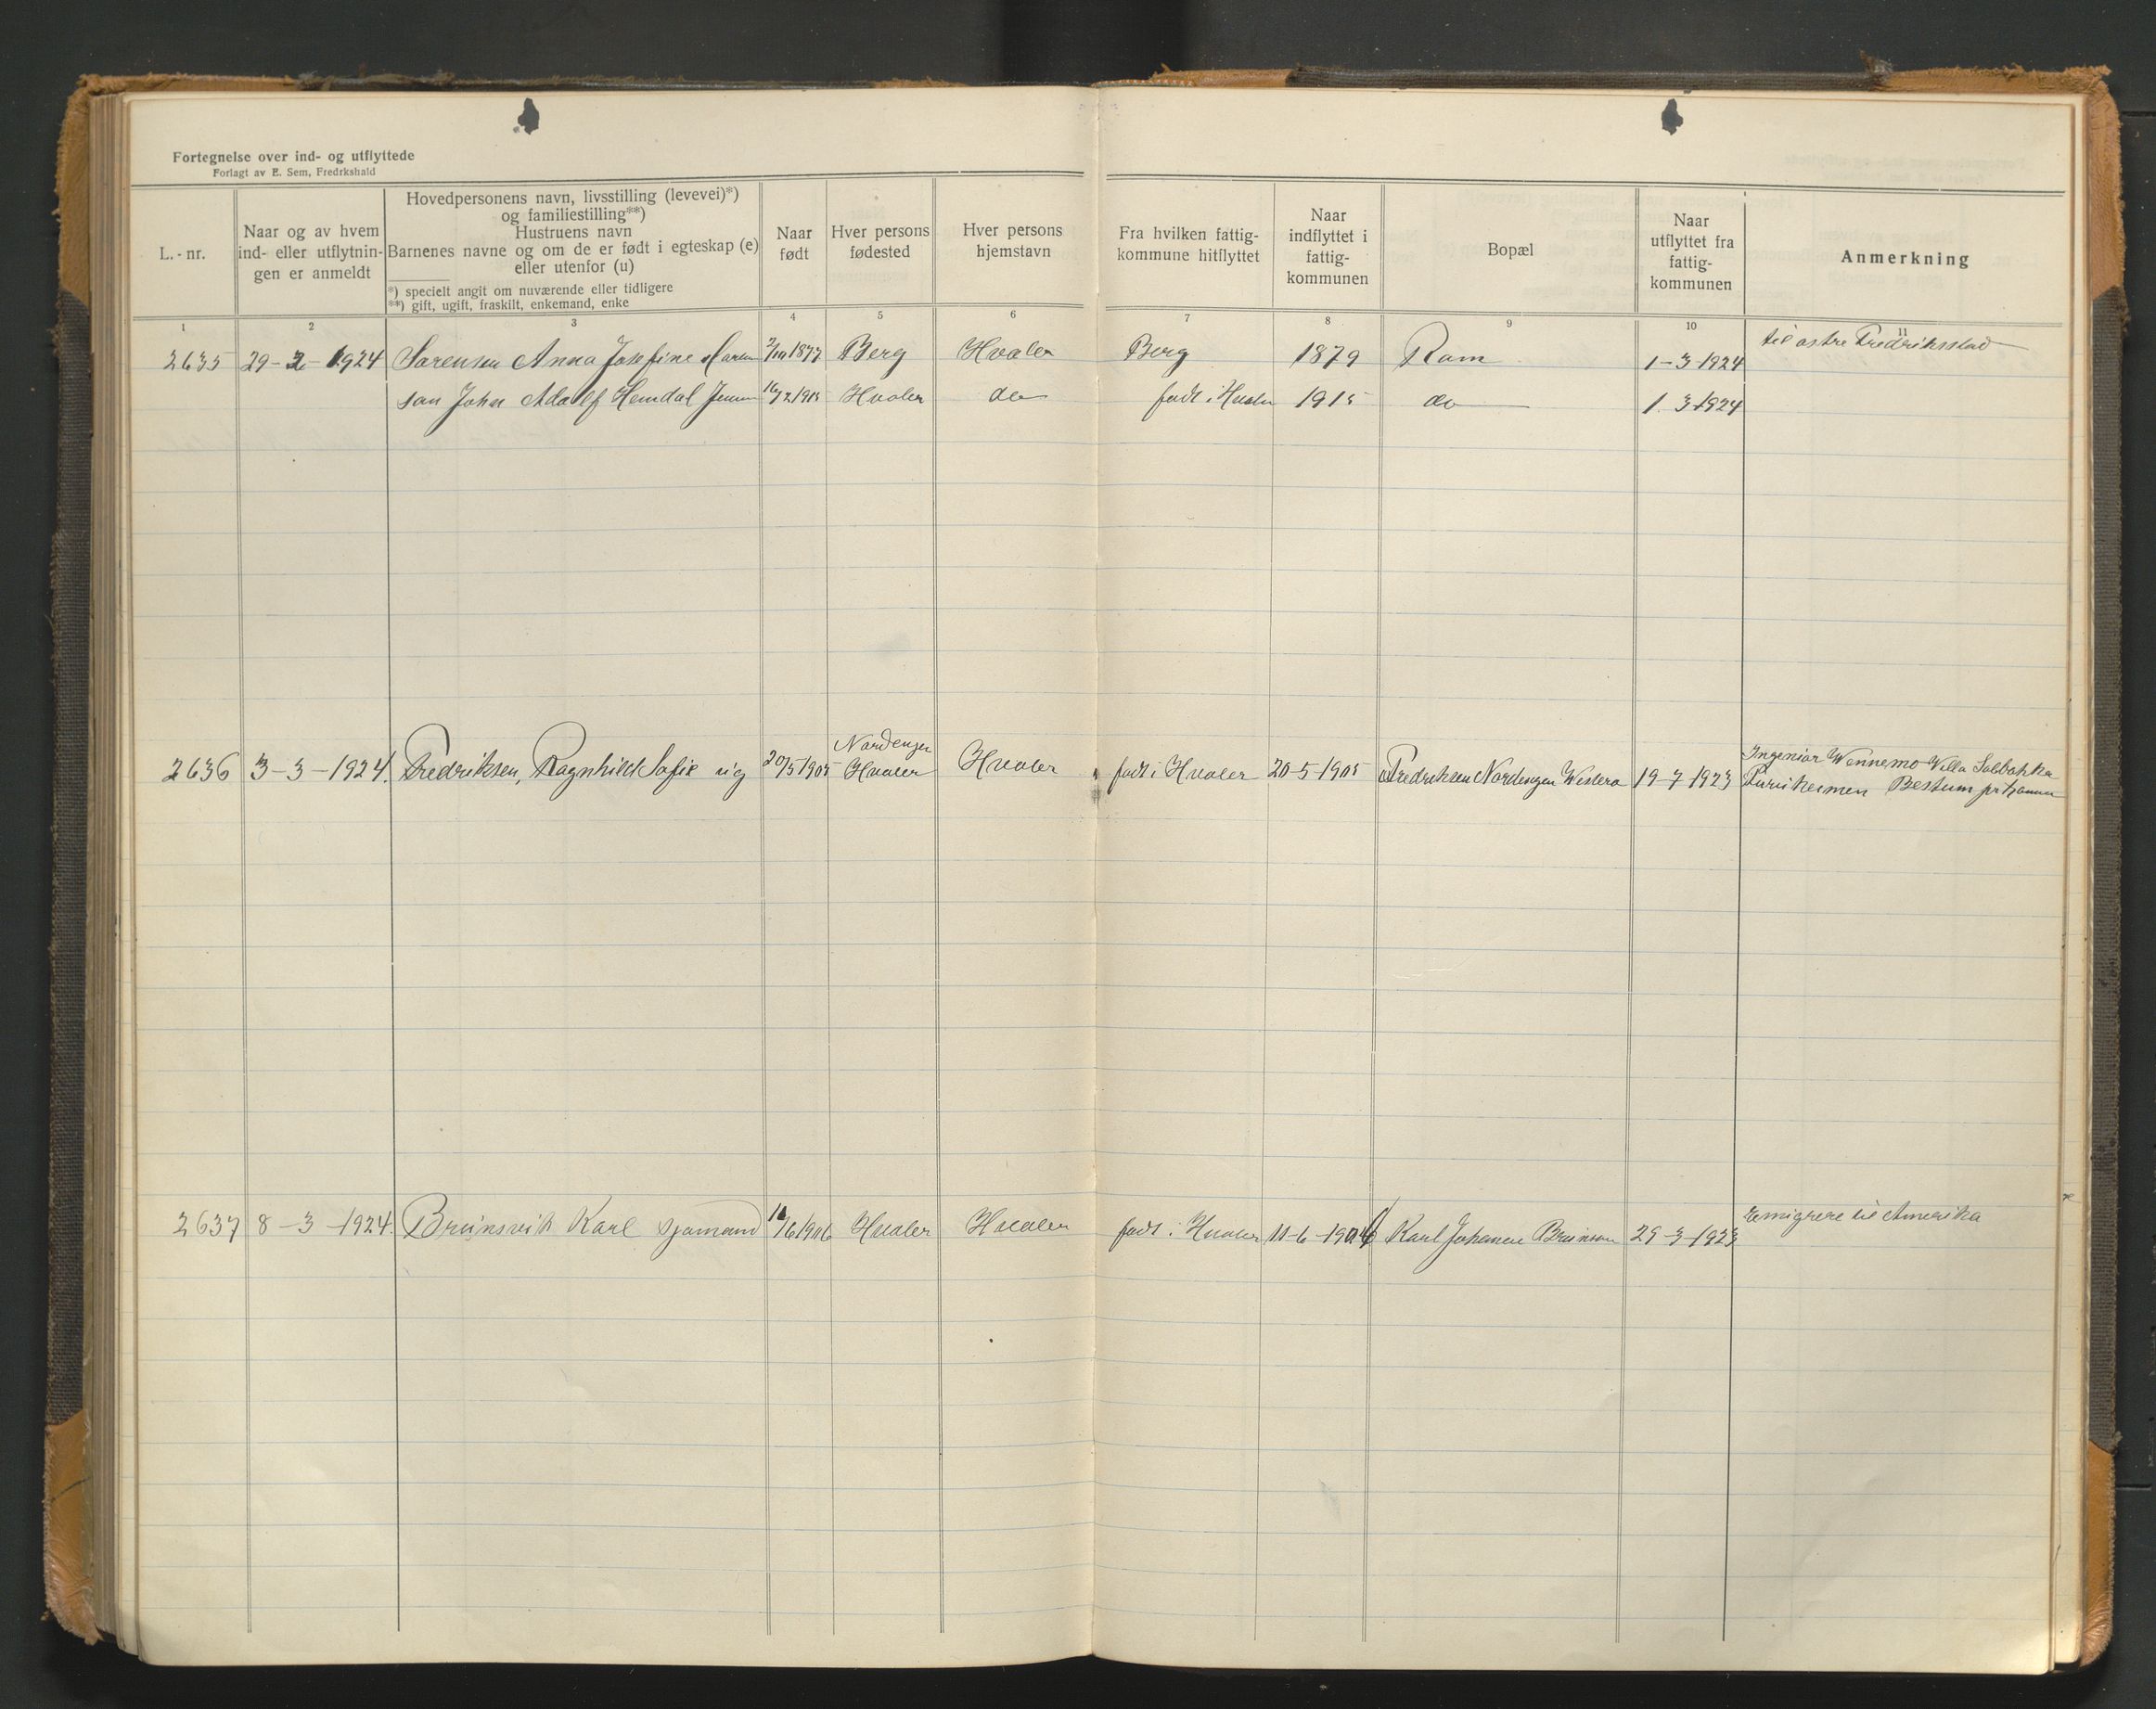 Fortegnelse over ind- og utflyttede
Forlagt av E. Sem, Fredrkshald
L.-nr.
Naar og av hvem
ind- eller utflytnin-
gen er anmeldt
Hovedpersonens navn, livsstilling (levevei)*)
og familiestilling**)
Hustruens navn
Barnenes navne og om de er født i egteskap (e)
eller utenfor (u)
*) specielt angit om nuværende eller tidligere
**) gift, ugift, fraskilt, enkemand, enke
Naar
født
Hver persons
fødested
Hver persons
hjemstavn
Fra hvilken fattig-
kommune hitflyttet
Naar
indflyttet i
fattig-
kommunen
Bopæl
Naar
utflyttet fra
fattig-
kommunen
Anmerkning
1 2 3 4 5 6 7 8 9 10 11
2635 29-2-1924 Sørensen Anna Josefine 1877 Berg Hvaler Berg 1879 Ram 1-3-1924 til østre Fredriksstad
søn John Adolf Hemdal Jensen 1915 Hvaler do født i Hvaler 1915 do 1.3-1924
2636 3-3-1924. Fredriksen, Ragnhild Sofie ug 20/5 1905 Nordenger Hvaler Hvaler født i Hvaler 20-5-1905 Fredriksen Nordengen Westerø 19-7-1923 Ingeniør Wennemo Villa Solbakka
Bestum pr
2637 8-3-1924. Brunsvik Karl sjømand /6 1906 Hvaler Hvaler født i Hvaler 11-6-1906 Karl Johannes 29-3-1923 Emigrere til Amerika